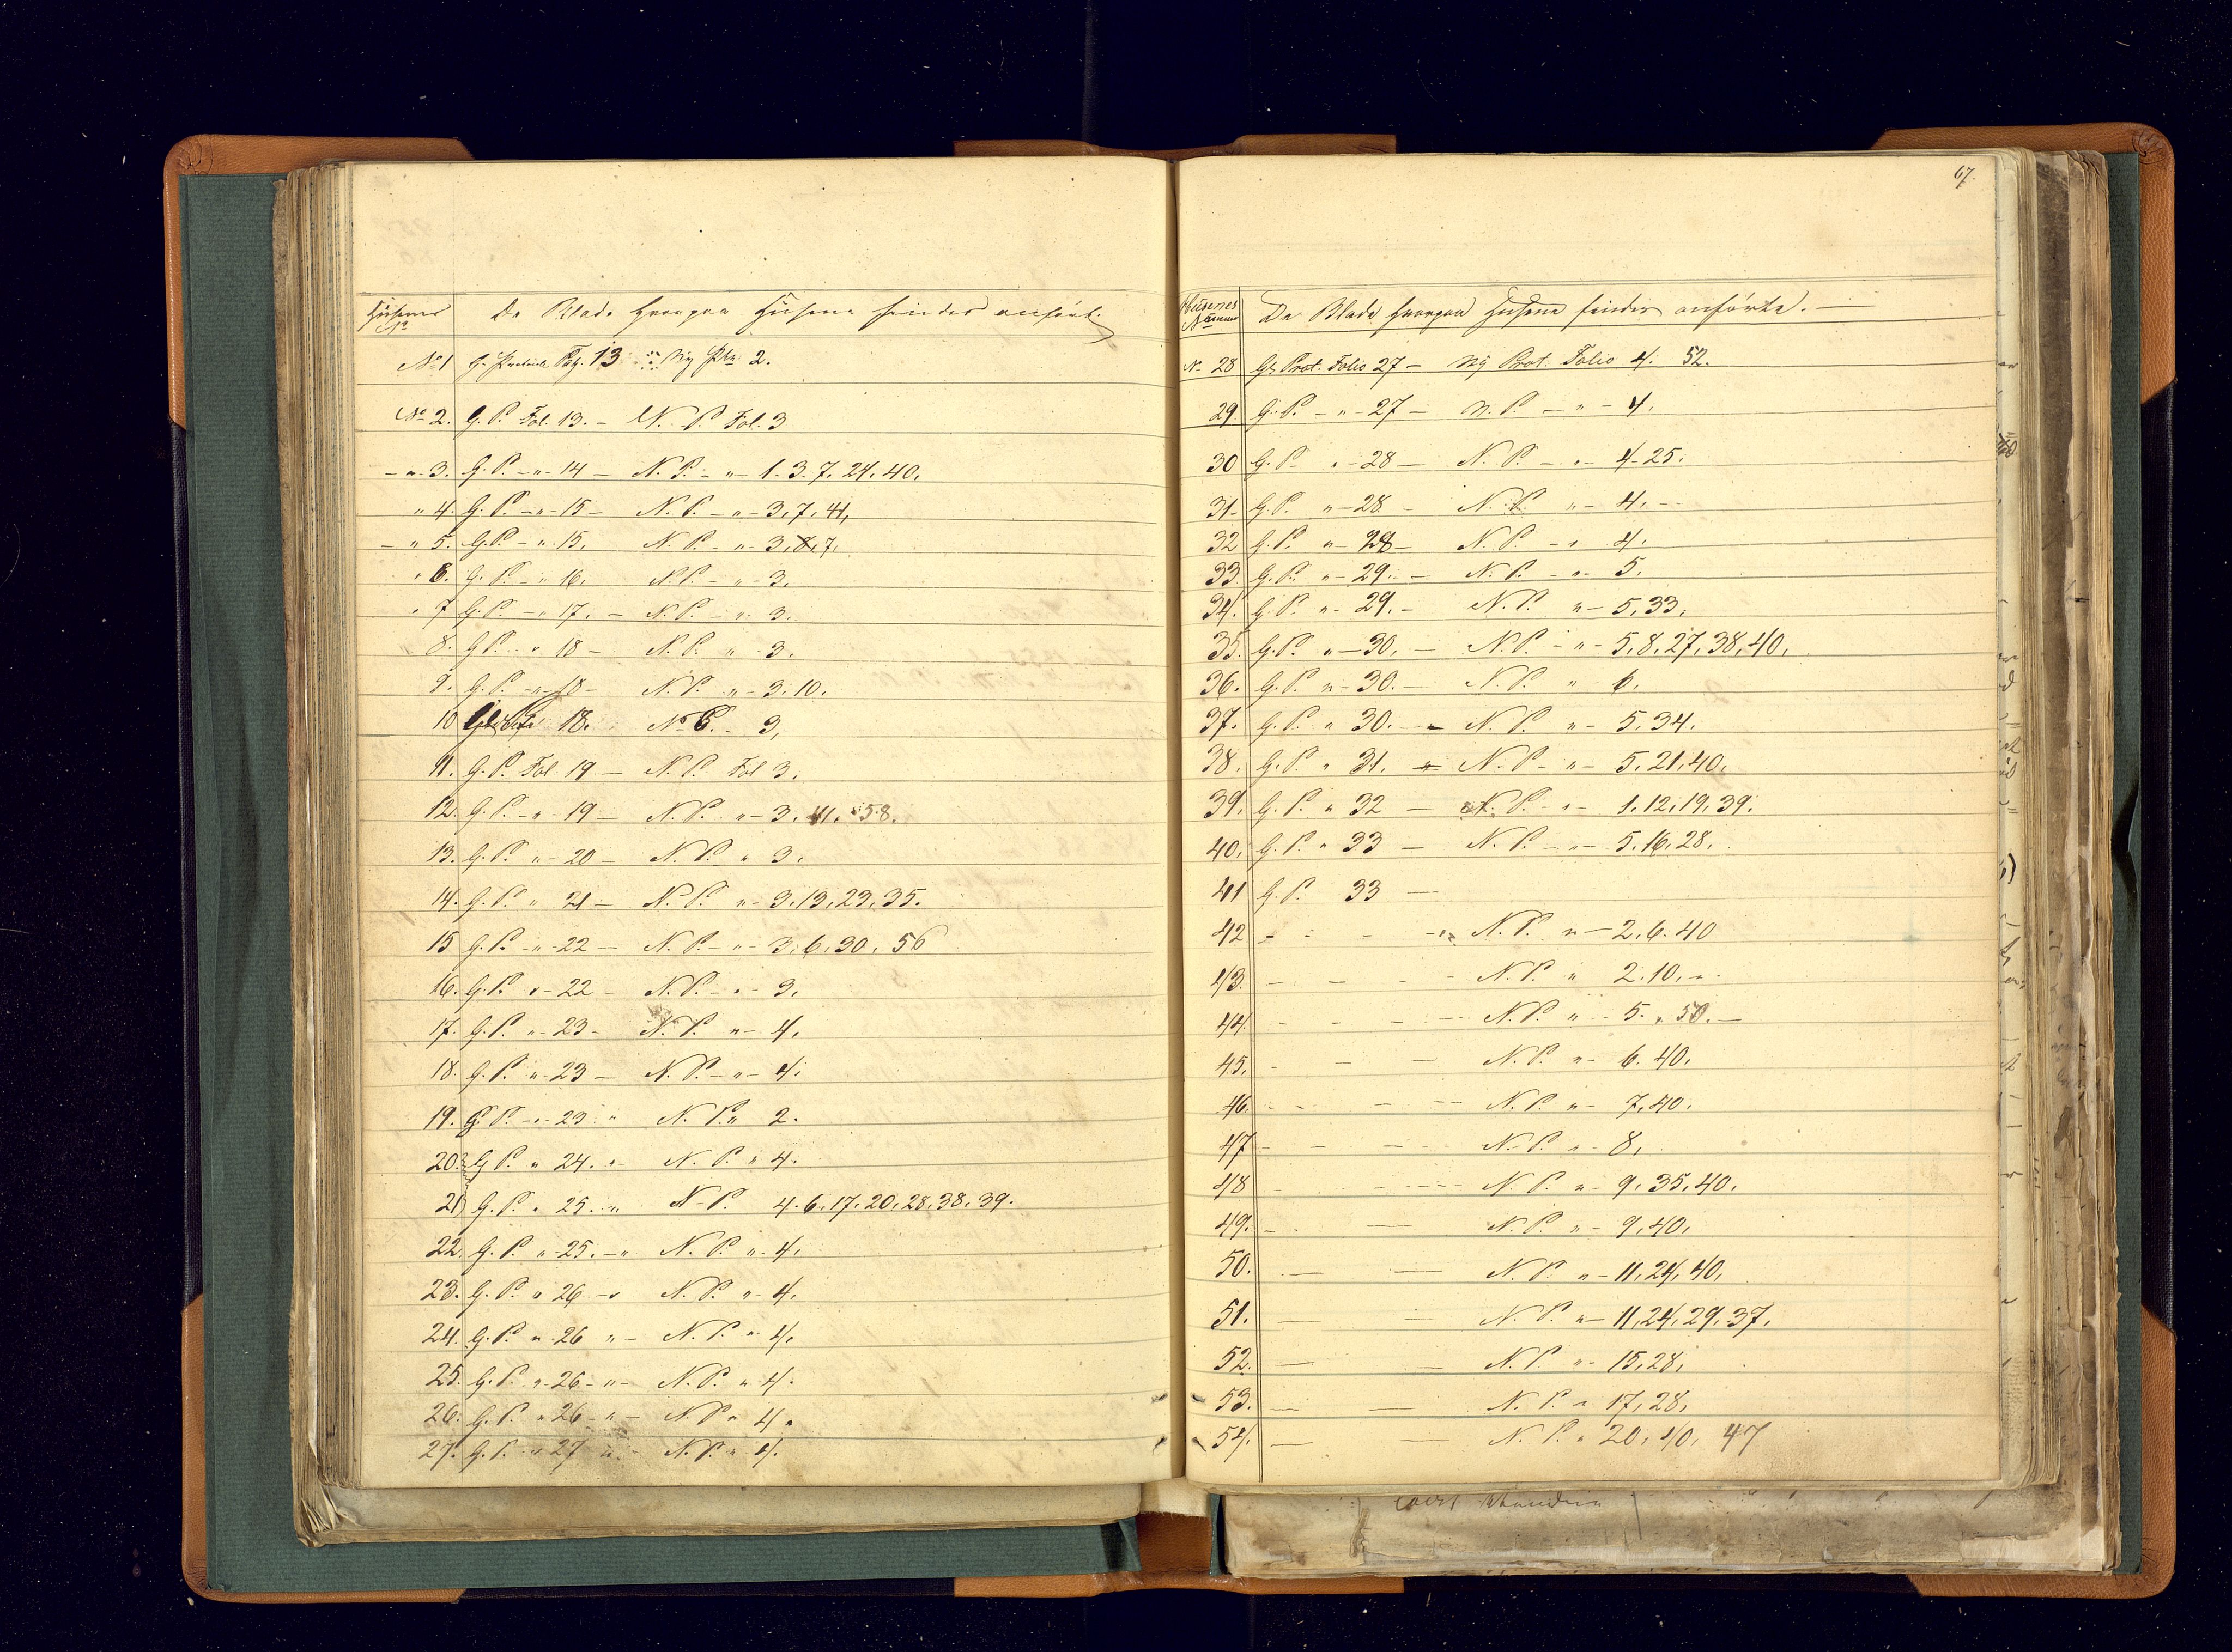 Husenes No De Blade hvorpaa Husene findes anført.
No 1 Gl. Protocol Pag. 13 Ny Pro. 2.
No 2. G. P. Fol. 13. - N. P. Fol. 3
- " - 3. G. P. - " - 14 - N. P. - " - 1. 3. 7. 24. 40.
" 4. G. P. - " - 15 - N. P. - " - 3, 7, 41,
- " 5. G. P. - " - 15. N. P. - " - 3, 8, 7,
" 6. G. P. - " 16. N. P. - " - 3.
" 7 G. P. - " 17. - N. P. - " - 3.
" 8. G. P. - " 18 - N. P. " - 3.
9. G. P. - " - 18 - N. P. " - 3. 10.
10 18. N. P. - 3,
11. G. P. Fol 19 - N. P. Fol 3.
12. G. P. - " - 19 - N. P. " - 3. 41. 58.
13. G. P. " - 20 - N. P. " 3.
14. G. P. " 21 - N. P. " - 3. 13, 23, 35.
15 G. P. - " - 22 - N. P. - " - 3, 6, 30. 56
16. G. P. " - 22 - N. P. - " - 3.
17. G. P. " - 23 - N. P. " - 4.
18. G. P. " - 23 - N. P. - " - 4.
19. G. P. - " - 23 " N. P. " 2.
20. G. P. " 24. " N. P. " 4.
21 G. P. " 25. " N. P. 4. 6. 17. 20, 28, 38. 39.
22. G. P. " - 25. - " N. P. " - 4.
23. G. P. " 26 - " N. P. " - 4.
24. G. P. " - 26 " - N. P. " - 4.
25. G. P. " - 26 - " - N. P. " 4.
26. G. P. " 26 - " - N. P. " 4.
27. G. P. - " 27 " - N. P. " 4.
67.
Husenes Nummer De Blade hvorpaa Husene findes anførte. -
No 28 Gl. Prot. Folio 27 - Ny Prot. Folio 4. 52.
29. G. P. - " - 27 - N. P. - " - 4.
30 G. P. - " - 28 - N. P. - " - 4 - 25.
31 - G. P. " - 28 - N. P. " - 4. -
32 G. P. " - 28 - N. P. - " 4.
33. G. P. " - 29. - N. P. - " - 5.
34. G. P. " - 29. - N. P. " - 5. 33.
35. G. P. " - 30. - N. P. - " - 5, 8, 27, 38, 40.
36. G. P. " - 30. - N. P. " 6.
37. G. P. " 30. - N. P. " - 5, 34.
38. G. P. " 31. " N. P. - " - 5. 21, 40.
39. G. P. " 32 - N. P. - " - 1. 12, 19, 39.
40. G. P. " 33 - N. P. - " - 5. 16, 28.
41 G. P. 33 -
42 - - - - " N. P. " - 2. 6. 40
43. - - - - N. P. " 2. 10. "
44. - - - - N. P. " - 5. " 50. -
45. - - - N. P. " - 6. 40.
46. - - - - N. P. " - 7, 40.
47 - - - - N. P. " - 8,
48 - - - N. P. " - 9. 35. 40.
49. - - N. P. " - 9, 40.
50. - - N. P. " - 11, 24, 40.
51. - - N. P. " - 11, 24, 29. 37.
52. - - N. P. " - 15, 28,
53. - - N. P. " 17, 28,
54. - - N. P. " 20, 40, 47